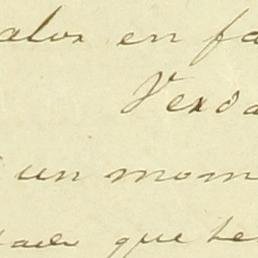 alor en fa
Verda
un mom
que te